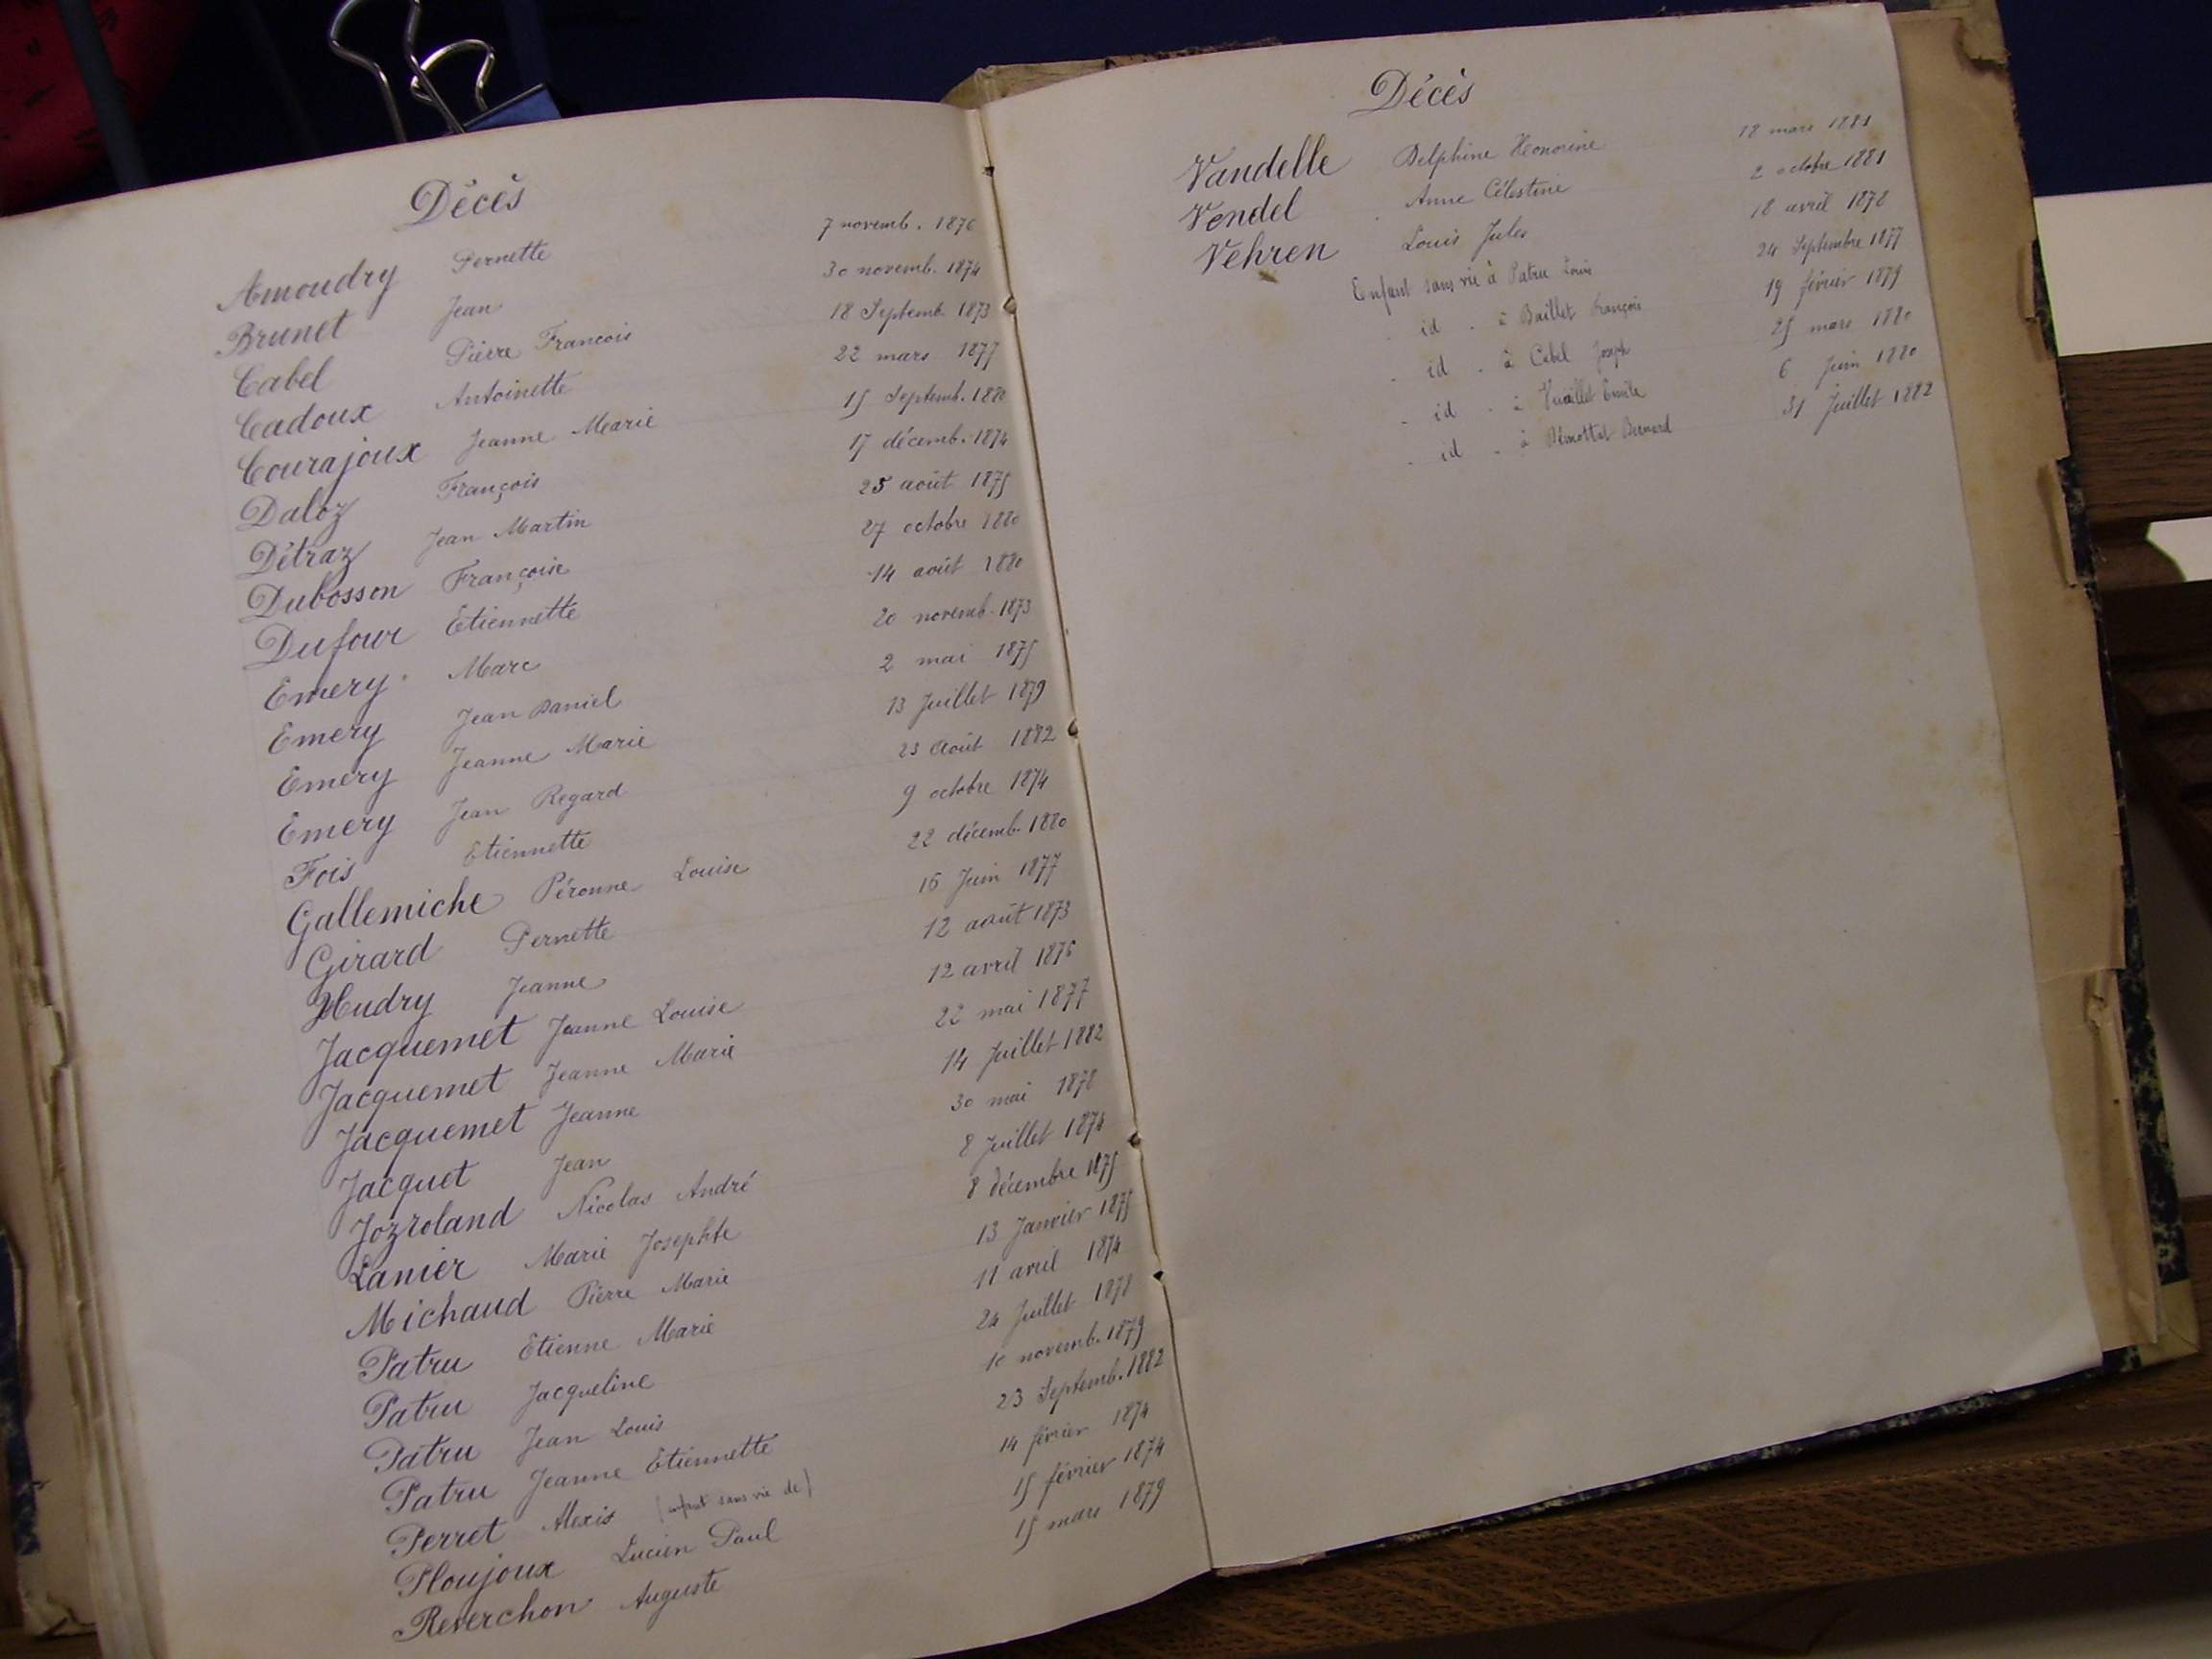 Décès
Amoudry Pernette 7 novemb. 1876
Brunet Jean 30 novemb. 1874
Cabel Pierre François 18 Septemb. 1873
Cadoux Antoinette 22 mars 1877
Courajoux Jeanne Marie 15 Septemb. 1880
Daloz François 17 décemb. 1874
Détraz Jean Martin 25 août 1875
Dubosson Françoise 27 octobre 1880
Dufour Etiennette 14 août 1880
Emery Marc 20 novemb. 1873
Emery Jean Daniel 2 mai 1875
Emery Jeanne Marie 13 Juillet 1879
Emery Jean Regard 23 Août 1882
Fois Etiennette 9 octobre 1874
Gallemiche Péronne Louise 22 décemb. 1880
Girard Pernette 15 Juin 1877
Hudry Jeanne 12 août 1873
Jacquemet Jeanne Louise 12 avril 1876
Jacquemet Jeanne Marie 22 mai 1877
Jacquemet Jeanne 14 Juillet 1882
Jacquet Jean 30 mai 1878
Jozroland Nicolas André 8 Juillet 1874
Lanier Marie Josephte 8 décembre 1875
Michaud Pierre Marie 13 Janvier 1875
Patru Etienne Marie 11 avril 1874
Patru Jacqueline 24 Juillet 1878
Patru Jean Louis 10 novemb. 1879
Patru Jeanne Etiennette 23 Septemb. 1882
Perret Alexis (enfant sans vie de) 14 février 1874
Ploujoux Lucien Paul 15 février 1874
Reverchon Auguste 15 mars 1879
Décès
Vandelle Delphine Honorine 18 mars 1881
Vendel Anne Célestine 2 octobre 1881
Vehren Louis Jules 18 avril 1878
Enfant sans vie à Patru Louis 24 Septembre 1877
- id - à Baillet François 19 février 1879
- id - à Cabel Joseph 25 mars 1880
- id - à Vuaillet Emile 6 Juin 1880
- id - à Bernard 31 Juillet 1882